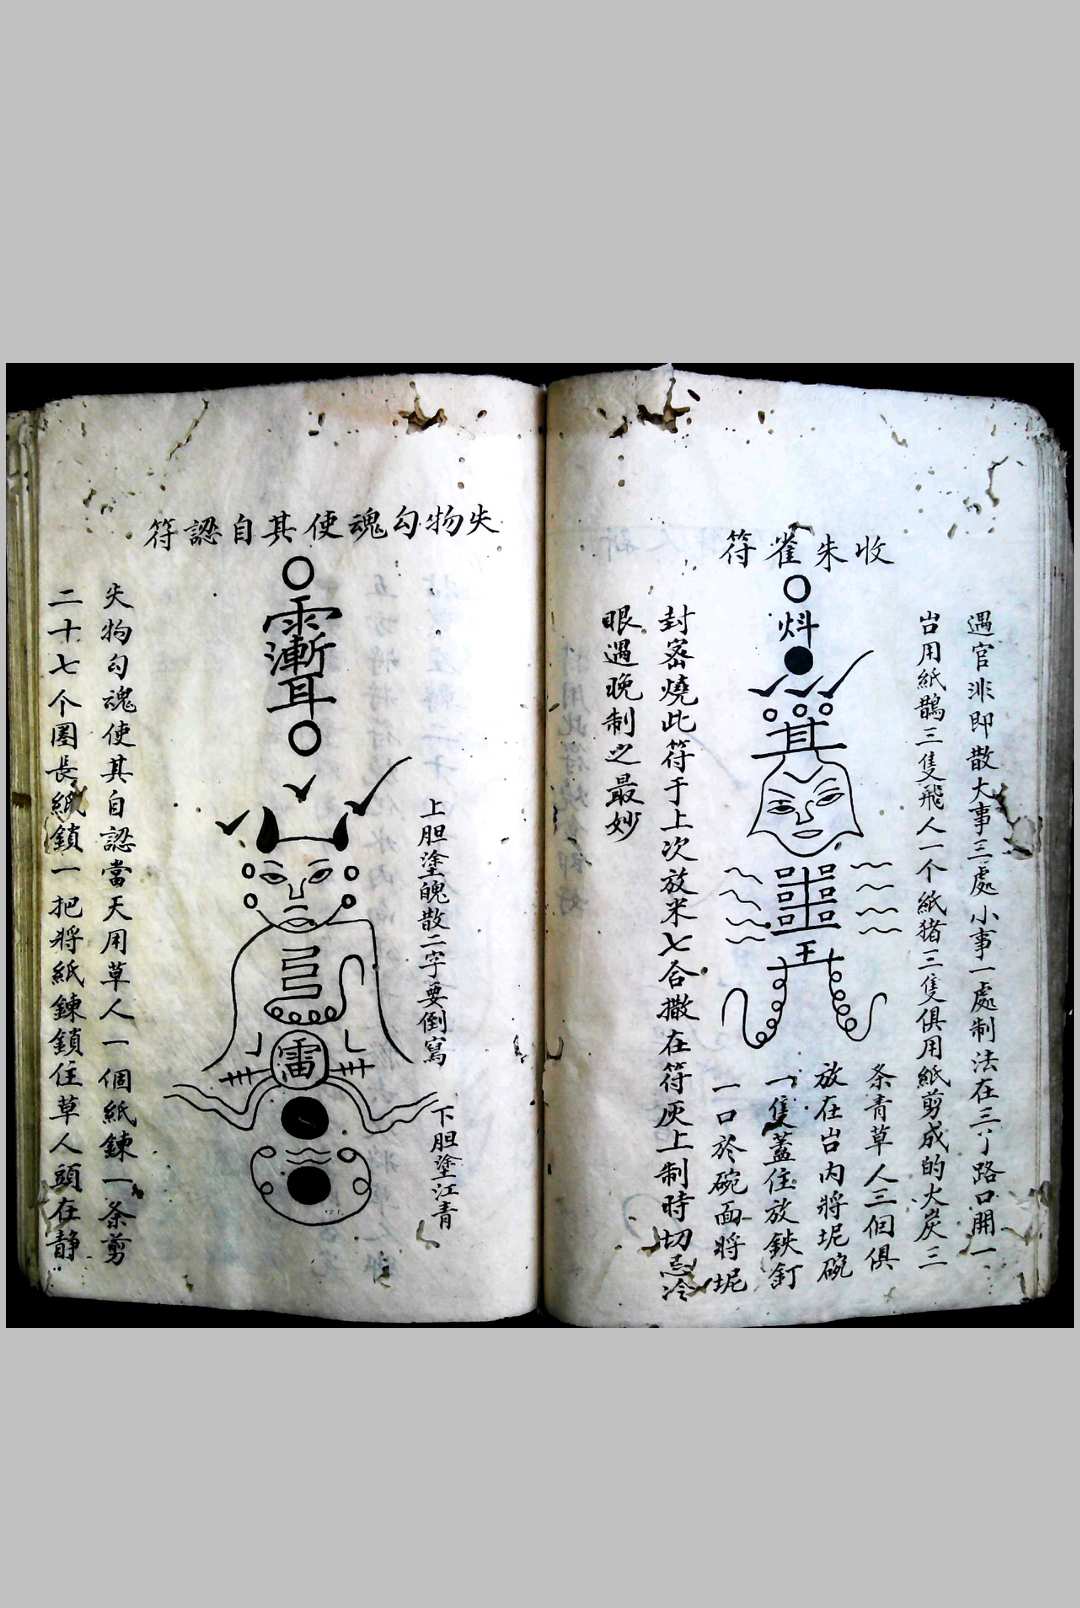 收朱雀符
遇官非即散大事三處小事一處制法在三丫路口開一
㘭用紙鵲三隻飛人一个紙猪三隻俱用紙剪成的大炭三
条青草人三個俱
放在㘭內將坭碗
一隻蓋住放鉄釘
一口於碗面將坭
封密燒此符于上次放米七合撒在符灰上制時切忌冷
眼遇晚制之最妙
失物勾魂使其自認符
上胆塗魄散二字要倒寫
下胆塗江青
雷
失物勾魂使其自認當天用草人一個紙鍊一条剪
二十七个圈長紙鎖一把將紙鍊鎖住草人頭在靜